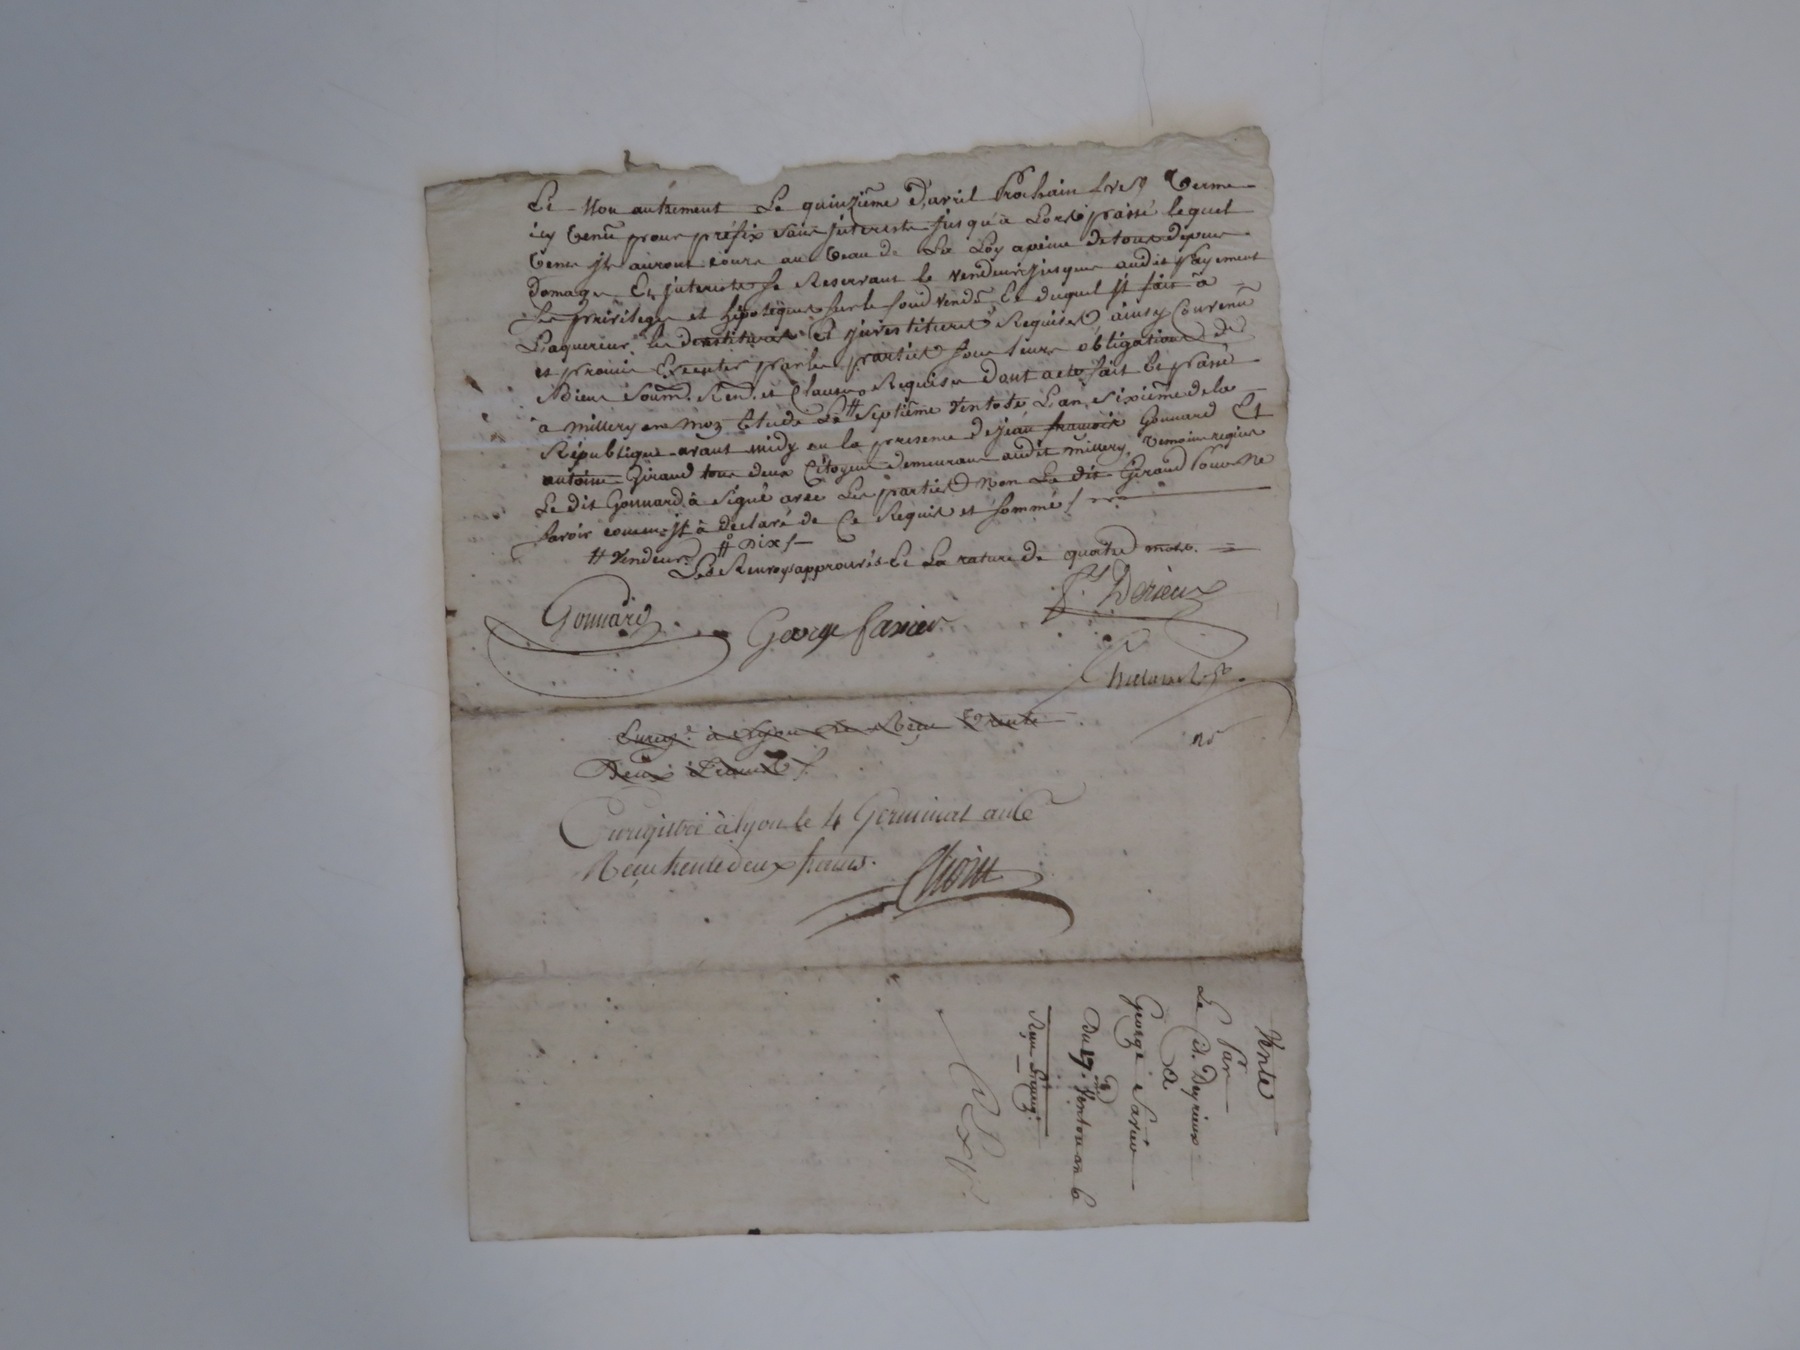 Et Non autrement Le quinzième d'avril Prochain terme
icy venu pour préfix sans jnterests jusqu'à Lors passé lequel
tems jls auront cours au veau de La Loy apeine de tous depens
Domages Et jnterests Se Reservant le vendeur jusques audit payement
Ses privileges et hipotèques sur le fond vendu Et duquel jl fait à
L'aquereur les Devestitures Et jnvestitures Requises, ainsy Convenu
et promis Executer par les parties sous leurs obligations de
Biens soum.s Ren.s et Clauses Requises Dont acte fait Et passé
à millery en mon Etude Le # Septième Ventose L'an Sixième de la
République avant midy en la presence de jean françois Gonnard Et
antoine Giraud tous deux Citoyens demeurans audit millery, temoins requis
Le dit Gonnard à Signé avec Les parties Non Le dit Giraud pour Ne
Savoir comme jl à declaré de Ce Requis et sommé /
# Vendeur # Dix /
Les Renvoys approuvés Et La rature de quatre mots.
Gonnard George Sarier J. Derieux
Enreg.é à Lyon Le Reçu trente
Deux francs /
Enregistré à lyon le 4 Germinal an 6e
Reçu trente deux francs.
Vente
Par
Le Cit. Deyrieux
a
George Sarier
Du 17.me Ventose an 6